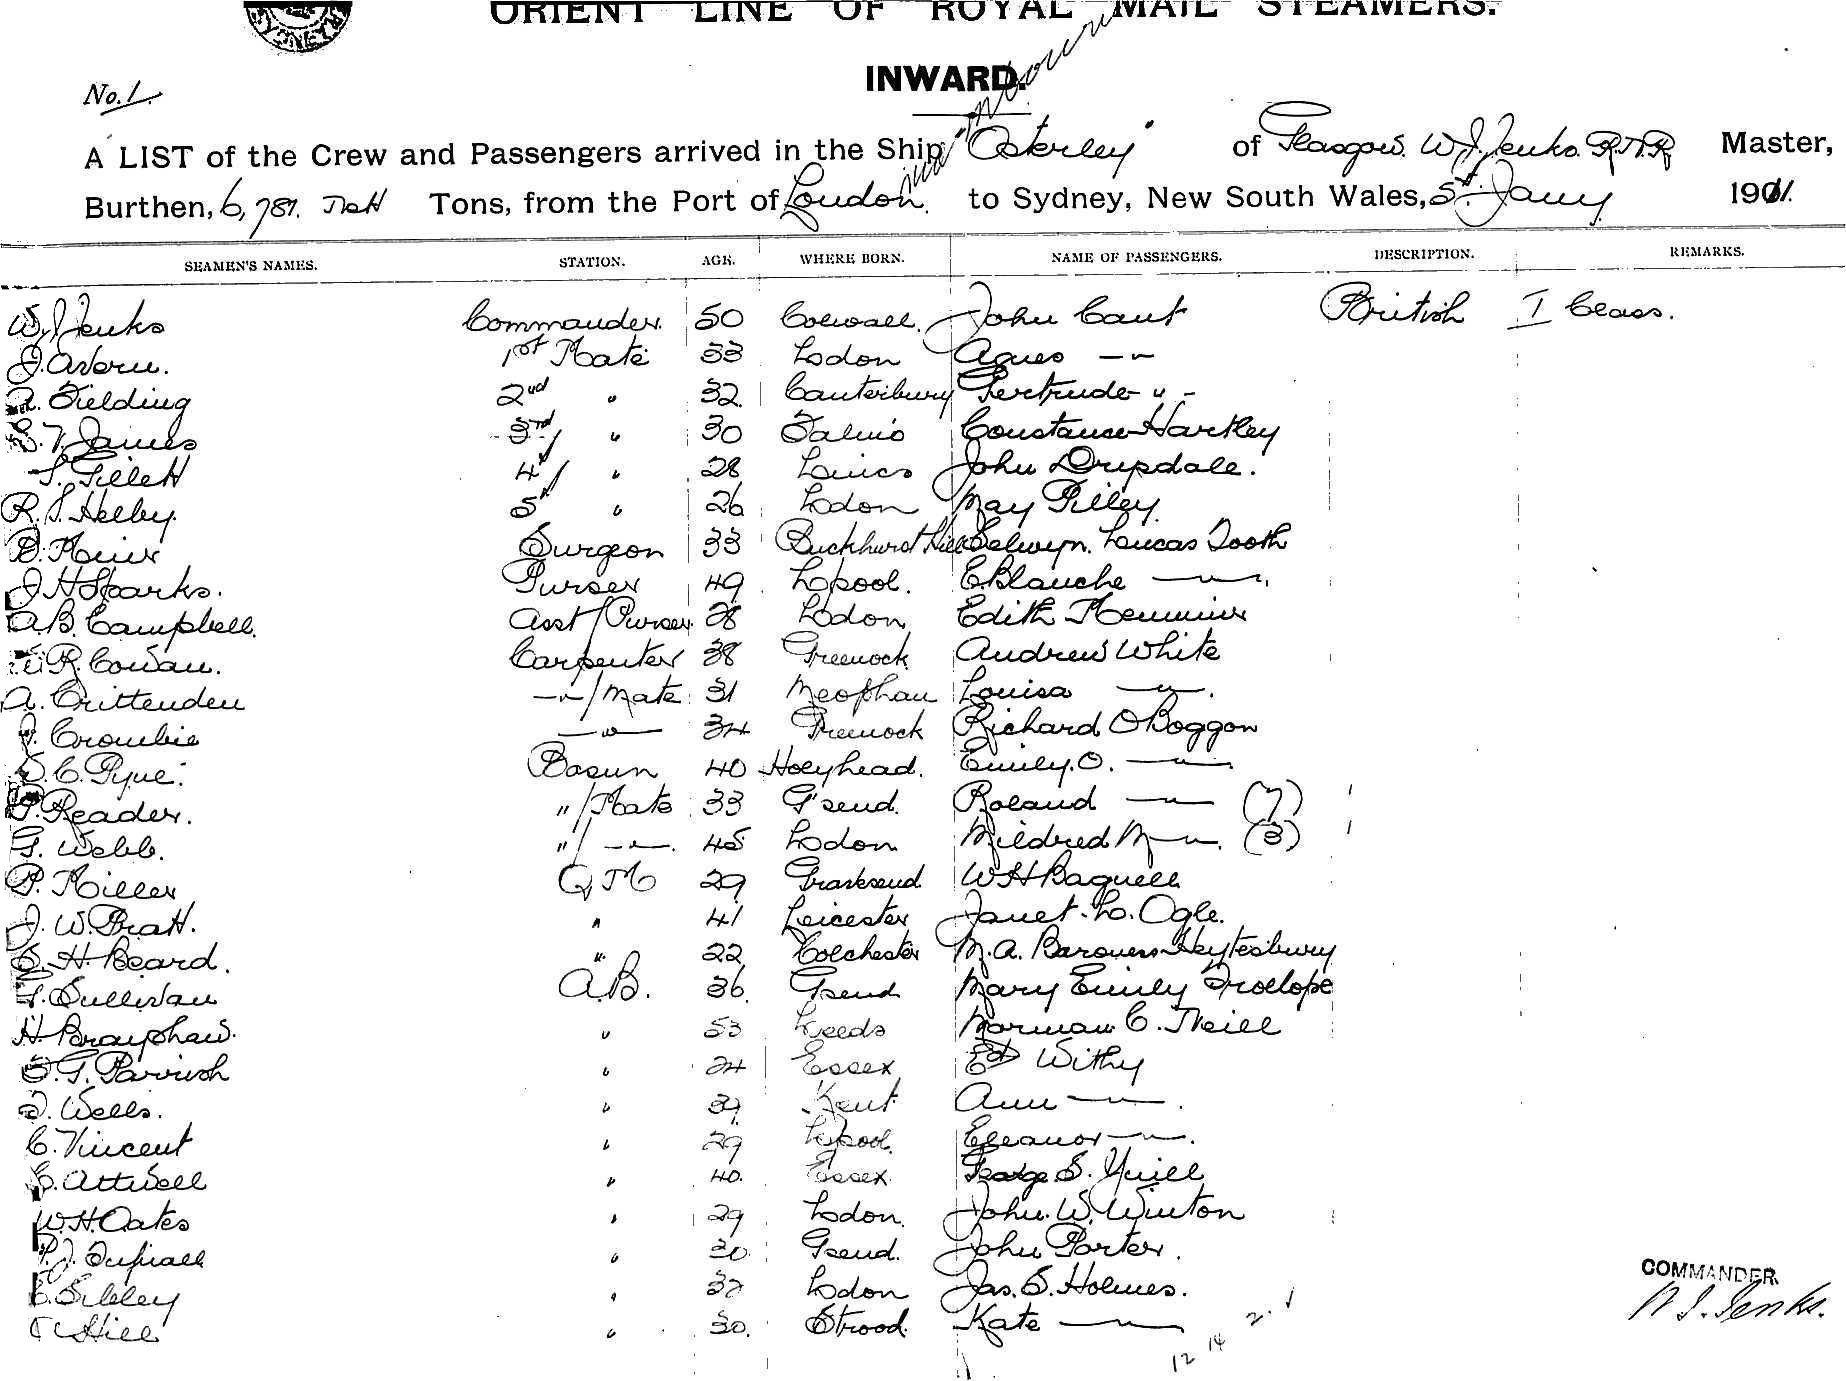 ORIENT LINE OF ROYAL MAIL STEAMERS.
INWARD.
No. 1
A LIST of the Crew and Passengers arrived in the Ship "Osterley" of Glasgow. W. J. Jenks. R.N.R. Master,
Burthen, 6,781. Nett Tons, from the Port of London. to Sydney, New South Wales, 5th Jany 1911.
SEAMEN'S NAMES. STATION. AGE. WHERE BORN. NAME OF PASSENGERS. DESCRIPTION. REMARKS.
W. J. Jenks Commander. 50 Colwall. John Cant British I Class.
J. 1st Mate 33 Lodon Agnes —"—
A. Fielding 2nd " 32 Canterbury Gertrude " -
James 3rd/ " 30 Constance Hartley
Gillett 4th/ " 28 Lincs John Drysdale.
R. S. Helby. 5th " 26 Lodon May Pilley.
Surgeon 33 Buckhurst Hill Selwyn. Lucas Tooth
J. H. Sparks. Purser 49 Lpool. E. Blanche —"—.
A. B. Campbell. Asst/Purser 28 Lodon Edith
R. Cowan. Carpenter 38 Greenock Andrew White
A. Crittenden —"—/Mate 31 Meopham Louisa —"—.
J. Crombie —"— 34 Greenock Richard O Boggon
C. Pyne. Bosun 40 Holyhead. Emily. O. —"—
Reader. "/Mate 33 G'send. Roland —"— (7)
G. Webb. "/ —"—. 45 Lodon Mildred M —"—. (3)
P. Miller Q M 29 Gravesend W H Bagnell
J. W. Pratt. " 41 Leicester Janet. L. Ogle.
H. Beard. " 22 Colchester M. A. Baroness Heytesbury
Sullivan A.B. 36 Gsend Mary Emily Trollope
H. Brayshaw. " 53 Leeds Norman C. Neill
G. Parrish " 24 Essex Ed Withy
Wells. " Kent Ann —"—.
C. Vincent " 29 Lpool. Eleanor —"—.
C. Attwell " 40. Essex George S. Yuill
W. H. Oates " 29 Lodon. John. W. Winton
P. J. " 30. Gsend. John Porter.
C. Sibley " 32 Lodon Jas. S. Holmes.
Hill " 30. Strood. Kate —"—
COMMANDER.
W. J. Jenks.
12 14 2.